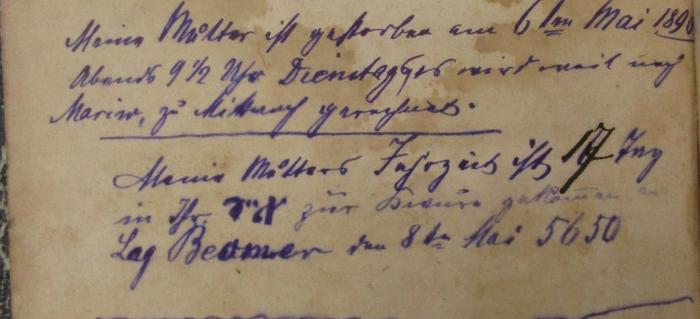 Meine Mutter ist gestorben am 6ten Mai 1890
Abends 9½ Uhr Dienstag es wird weil nach
zu Mittwoch gerechnet.
Meine Mutters Jahrzeit ist 17 Tag
in Ijr אייר zur gekommen
Lag Beomer den 8ten Mai 5650